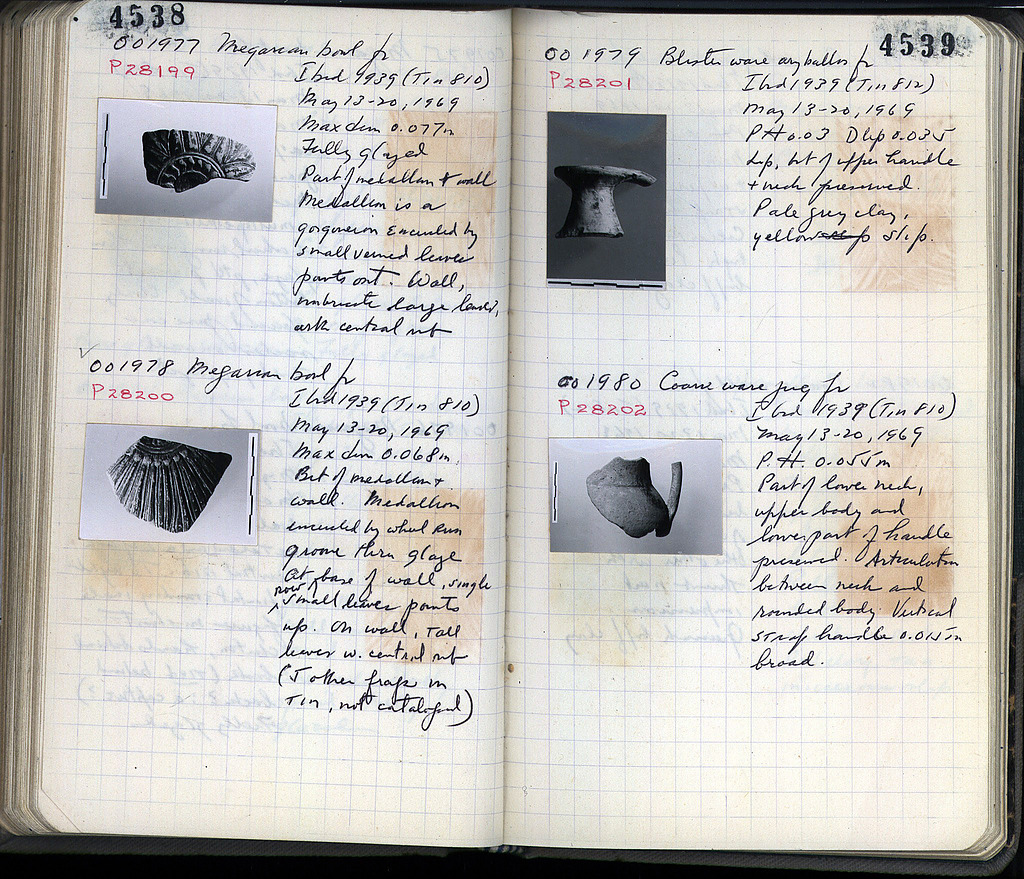 4538
OO 1977 Megarean bowl fr
P28199
I bid 1939 (Tin 810)
May 13-20, 1969
Max dim 0.077m
Fully glazed
Part of medallion + wall
Medallion is a
gorgoneion encircled by
small veined leaves
points out. Wall,
imbricate large leaves,
with central rib
OO 1978 Megarean bowl fr
P28200
I bid 1939 (Tin 810)
May 13-20, 1969
Max dim 0.068m.
Bit of medallion +
wall. Medallion
encircled by wheel run
groove thru glaze
At base of wall, single
row small leaves points
up. On wall, tall
leaves w. central rib
(5 other frags in
Tin, not catalogued)
4539
OO 1979 Blister ware aryballos fr
P28201
I bid 1939 (Tin 812)
May 13-20, 1969
PH 0.03 D lip 0.035
Lip, bit of upper handle
+ neck preserved.
Pale grey clay,
yellow slip.
OO 1980 Coarse ware jug fr
P28202
I bid 1939 (Tin 810)
May 13-20, 1969
P.H. 0.055m
Part of lower neck,
upper body and
lower part of handle
preserved. Articulation
between neck and
rounded body. Vertical
strap handle 0.015m
broad.